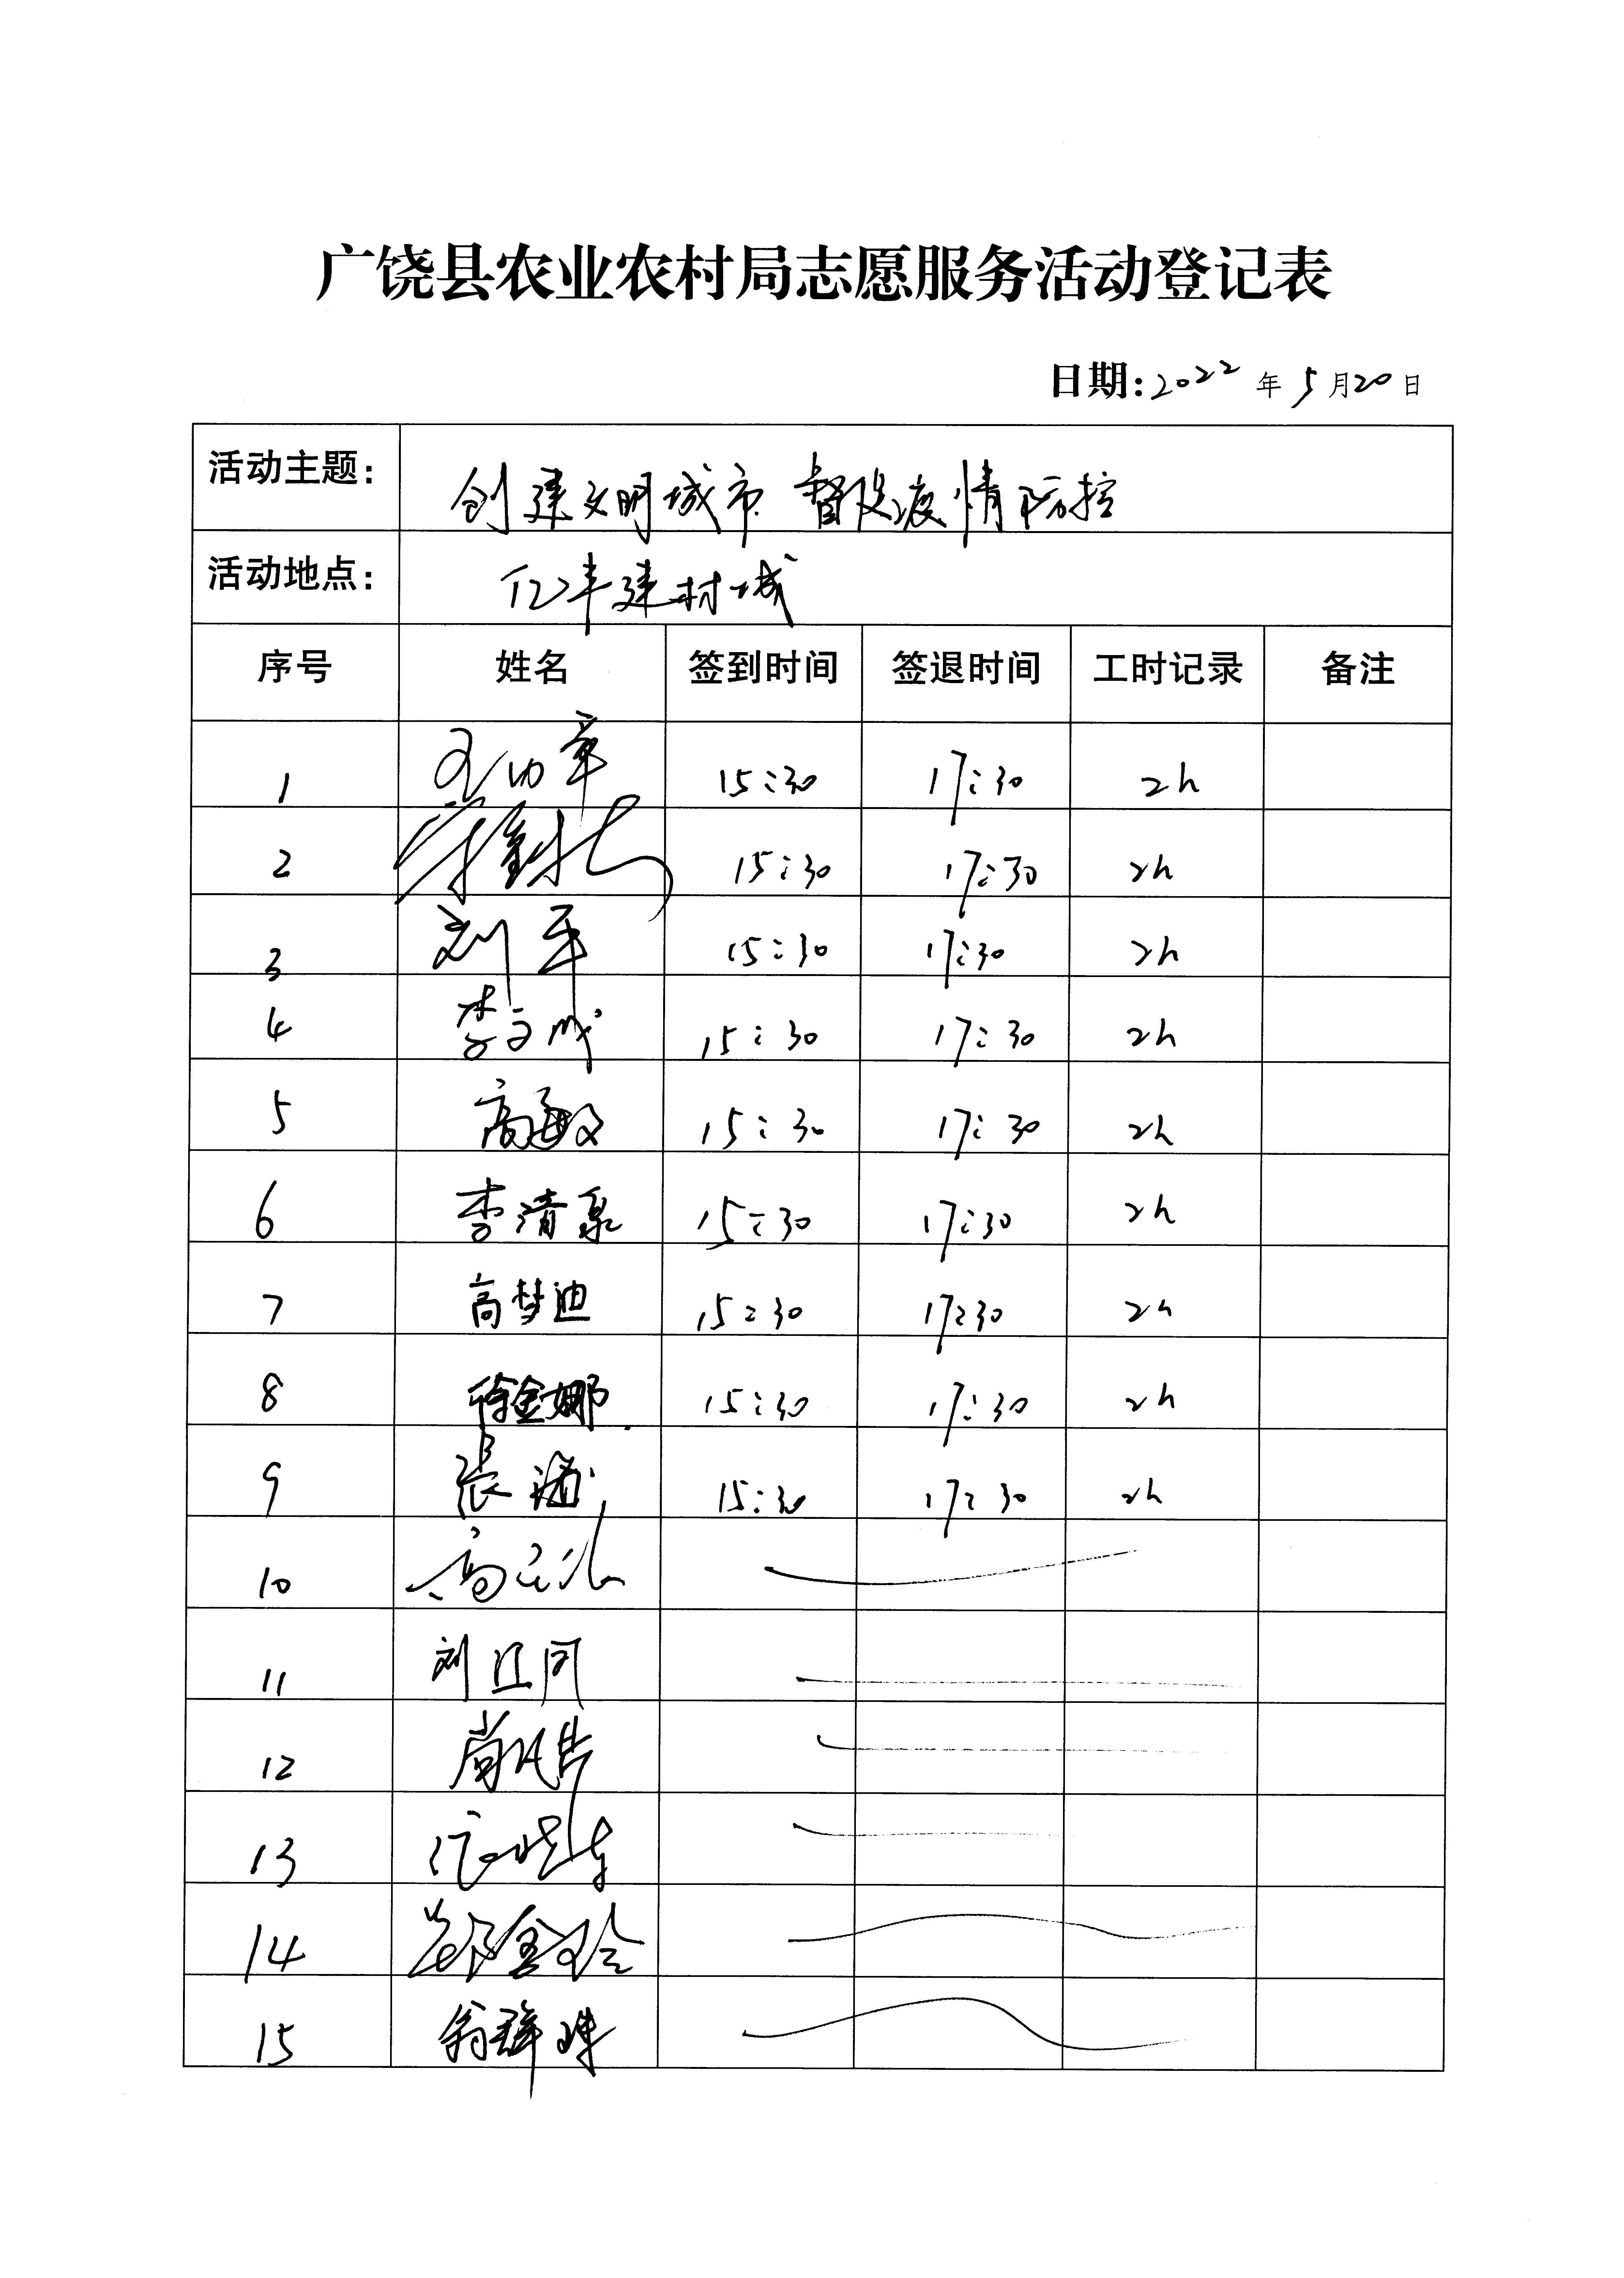 广饶县农业农村局志愿服务活动登记表
日期:2022年5月20日
活动主题: 创建文明城市 督促疫情防控
活动地点: 亿丰建材城
序号 姓名 签到时间 签退时间 工时记录 备注
1 15:30 17:30 2h
2 15:30 17:30 2h
3 刘军 15:30 17:30 2h
4 李文成 15:30 17:30 2h
5 高敏 15:30 17:30 2h
6 李清泉 15:30 17:30 2h
7 高梦迪 15:30 17:30 2h
8 徐金娜 15:30 17:30 2h
9 张 15:30 17:30 2h
10 高
11 刘江同
12 尚
13
14 金玲
15 翁